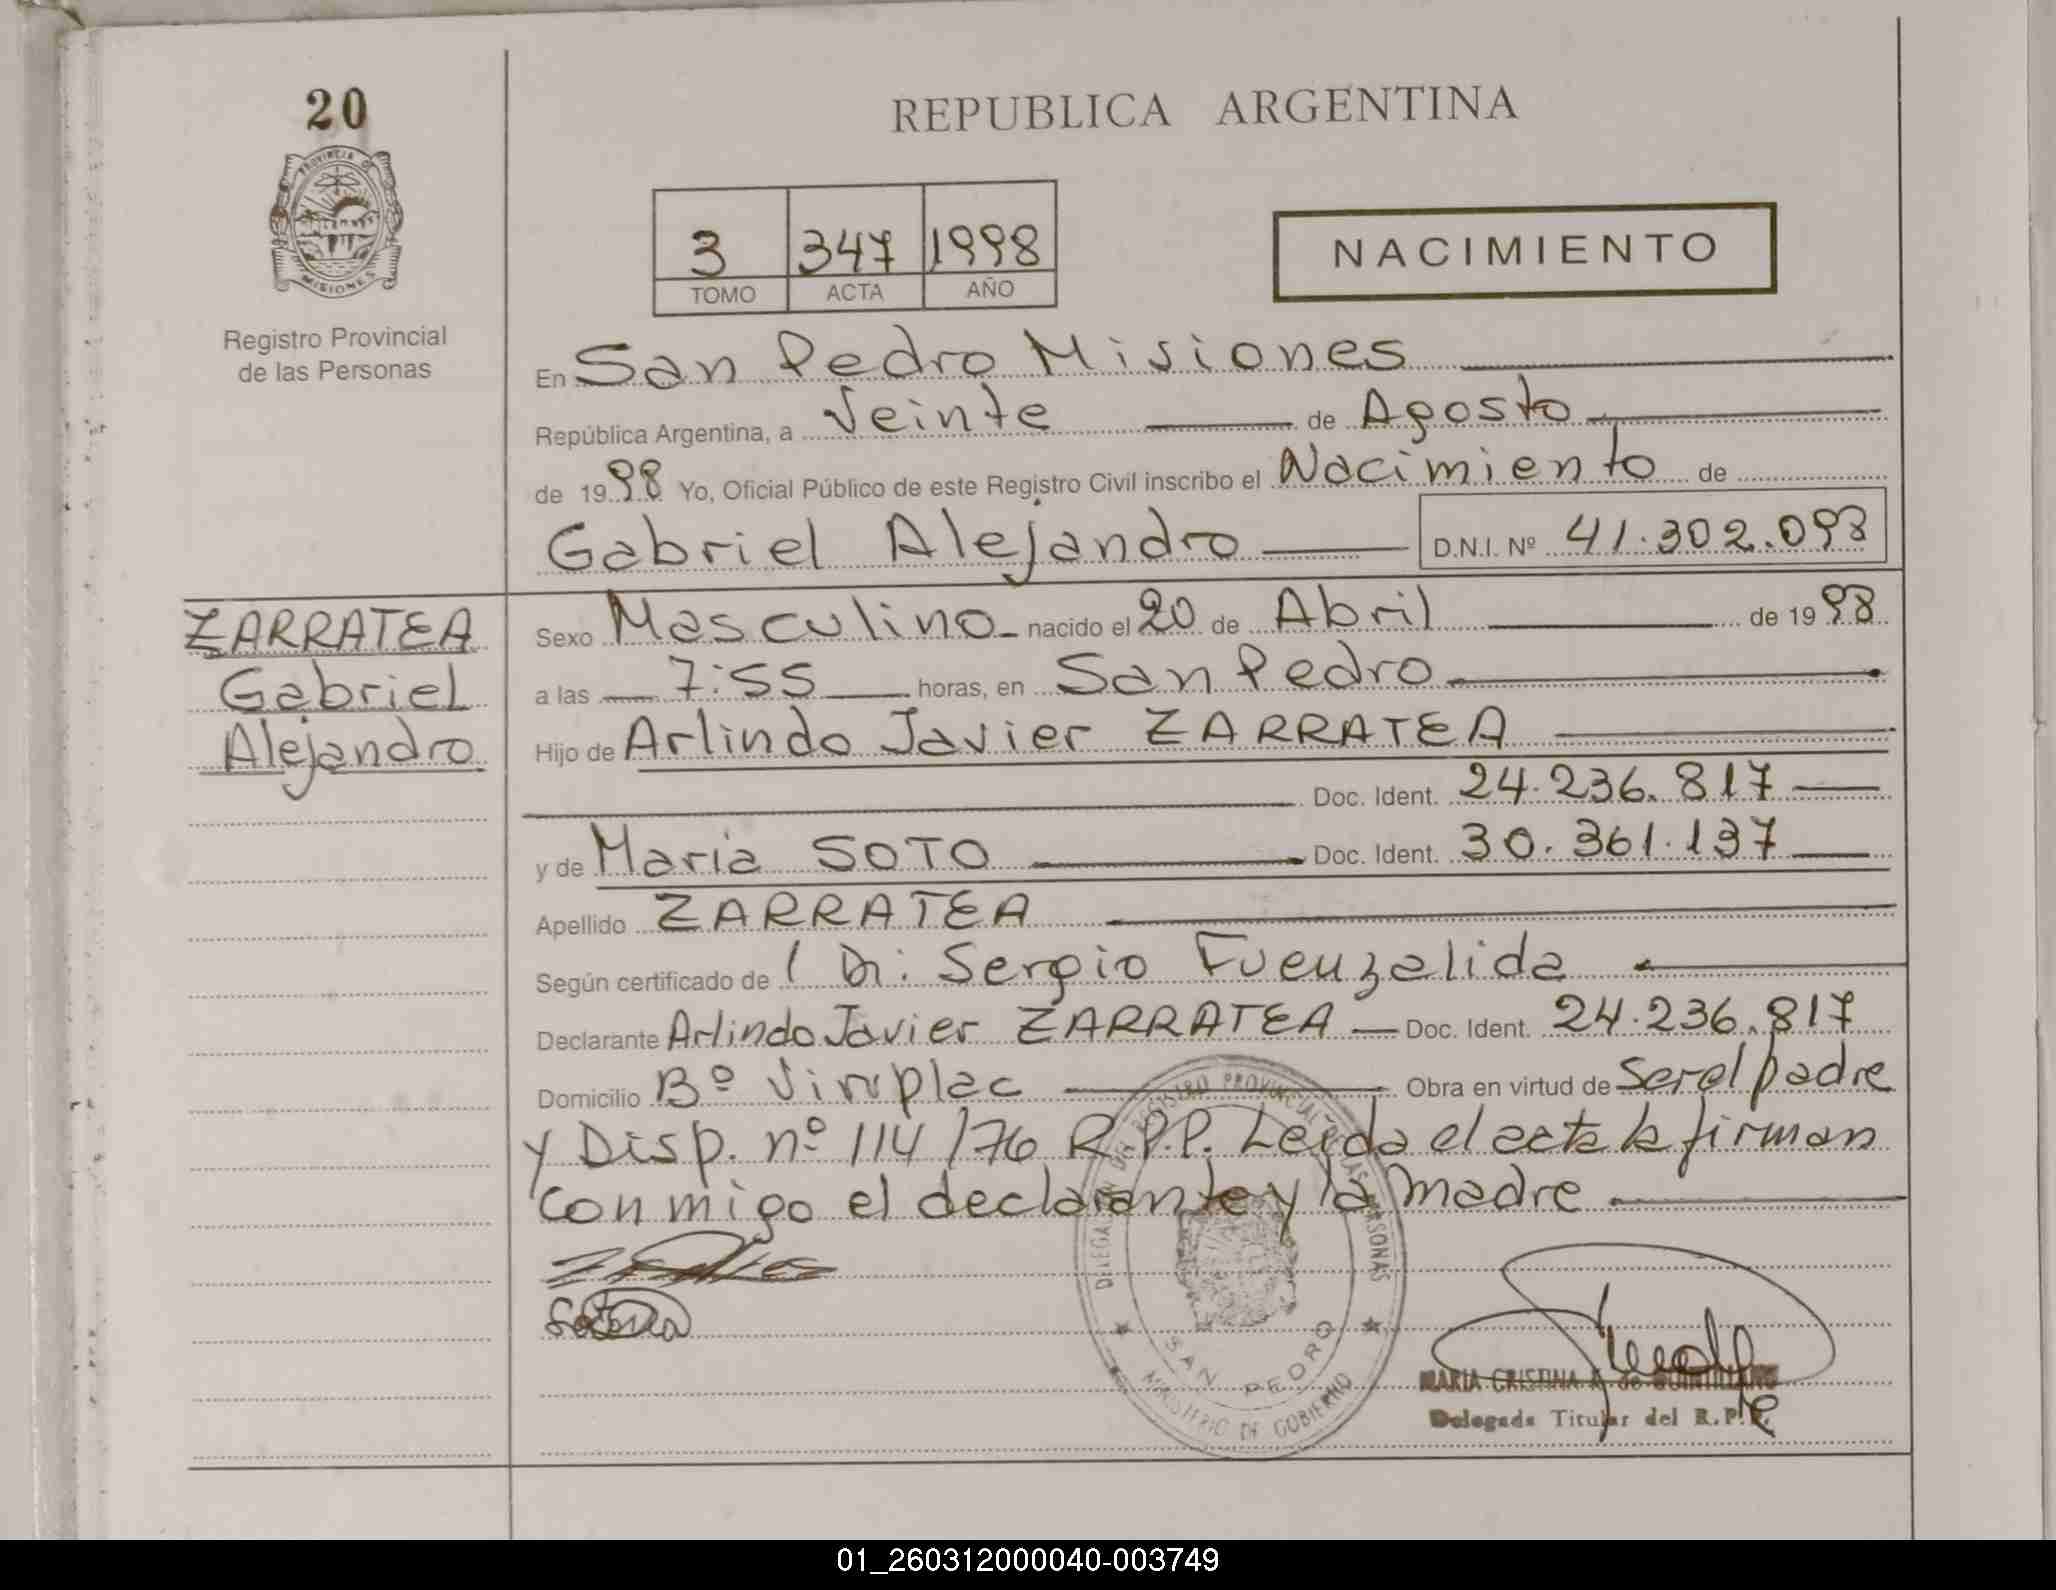 20
REPUBLICA ARGENTINA
PROVINCIA DE
MISIONES
Registro Provincial
de las Personas
3 347 1998
TOMO ACTA AÑO
NACIMIENTO
En San Pedro Misiones
República Argentina, a Veinte de Agosto
de 1998 Yo, Oficial Público de este Registro Civil inscribo el Nacimiento de
Gabriel Alejandro D.N.I. Nº 41.302.093
ZARRATEA
Gabriel
Alejandro
Sexo Masculino nacido el 20 de Abril de 1998
a las 7:55 horas, en San Pedro
Hijo de Arlindo Javier ZARRATEA
Doc. Ident. 24.236.817
y de Maria SOTO Doc. Ident. 30.361.137
Apellido ZARRATEA
Según certificado de l Dr. Sergio Fuenzalida
Declarante Arlindo Javier ZARRATEA Doc. Ident. 24.236.817
Domicilio Bº Viruplac Obra en virtud de Ser el padre
y Disp. nº 114/76 R.P.P. Leida el acta la firman
conmigo el declarante y la madre
DELEGACION DEL REGISTRO PROVINCIAL DE LAS PERSONAS
SAN PEDRO
MINISTERIO DE GOBIERNO
MARIA CRISTINA de
Delegada Titular del R.P.P.
01_260312000040-003749